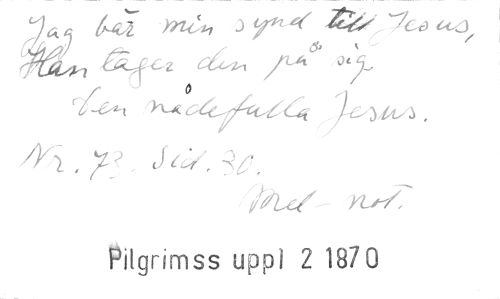 Jag bär min synd till Jesus,
Han tager den på sig
Den nådefulla Jesus.
Nr. 73. Sid. 30.
Mel - not.
Pilgrimss uppl 2 1870